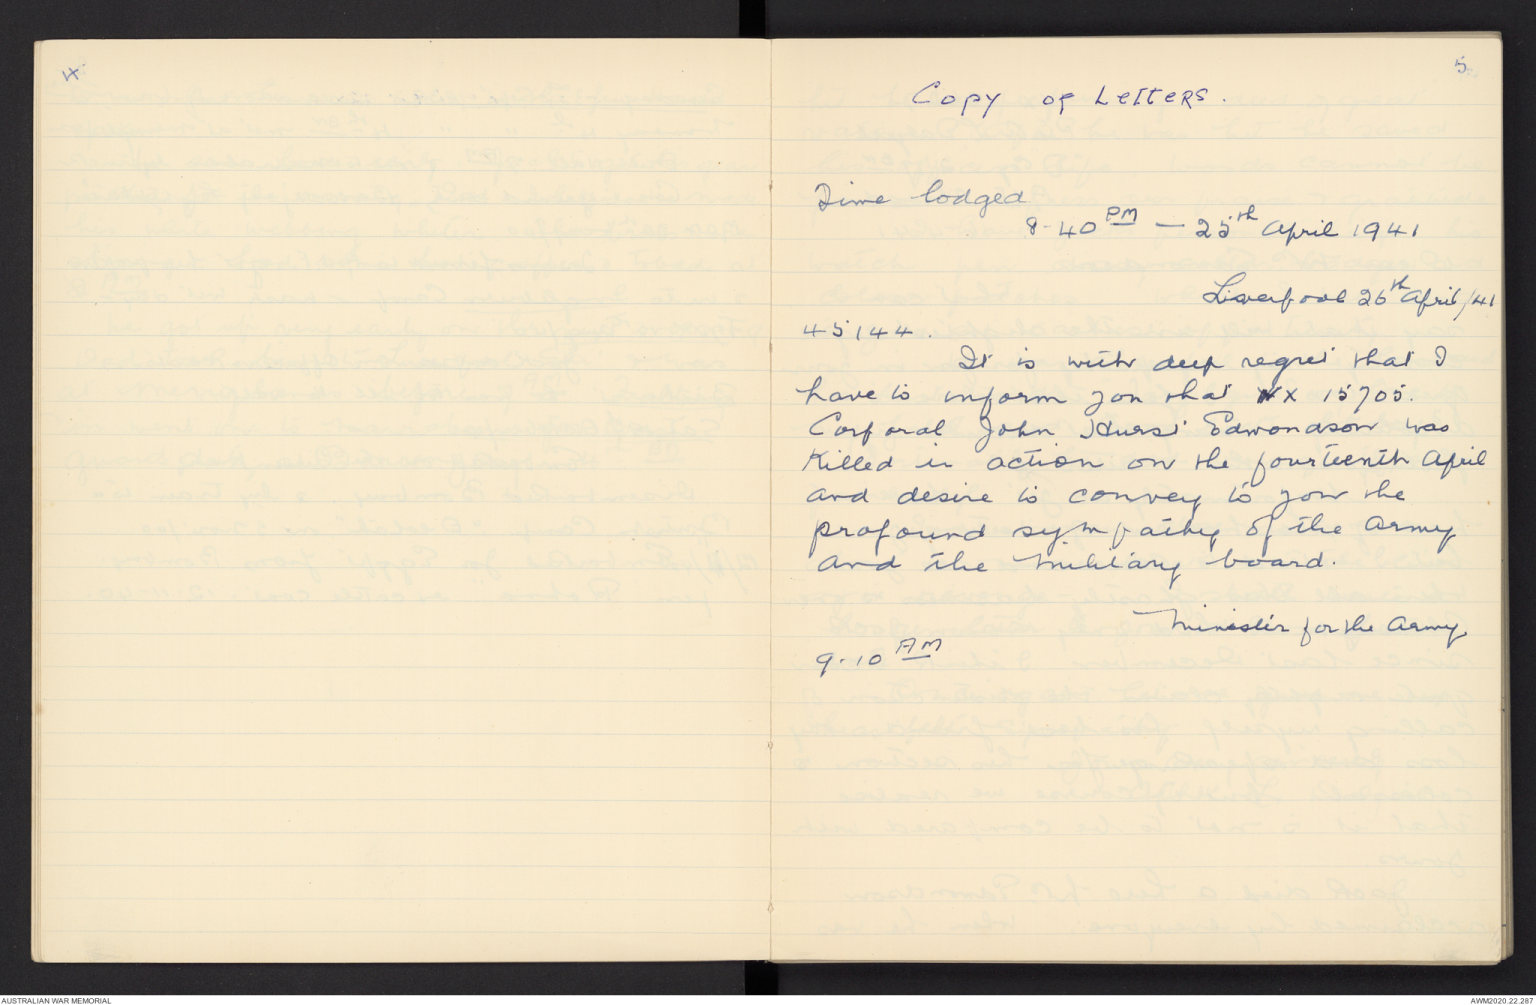 4
5
Copy of Letters.
Time lodged
8.40 PM — 25th April 1941
Liverpool 26th April/41
45144.
It is with deep regret that I
have to inform you that NX 15705.
Corporal John Hurst Edmondson was
Killed in action on the fourteenth April
and desire to convey to you the
profound sympathy of the Army
and the Military board.
Minister for the Army
9.10 AM
AUSTRALIAN WAR MEMORIAL
AWM2020.22.267